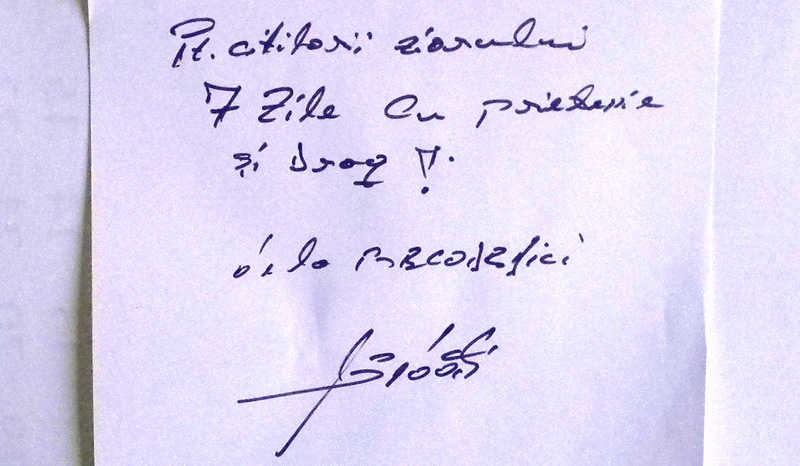 Pt. cititorii ziarului
7 Zile Cu prietenie
și drag !
de la